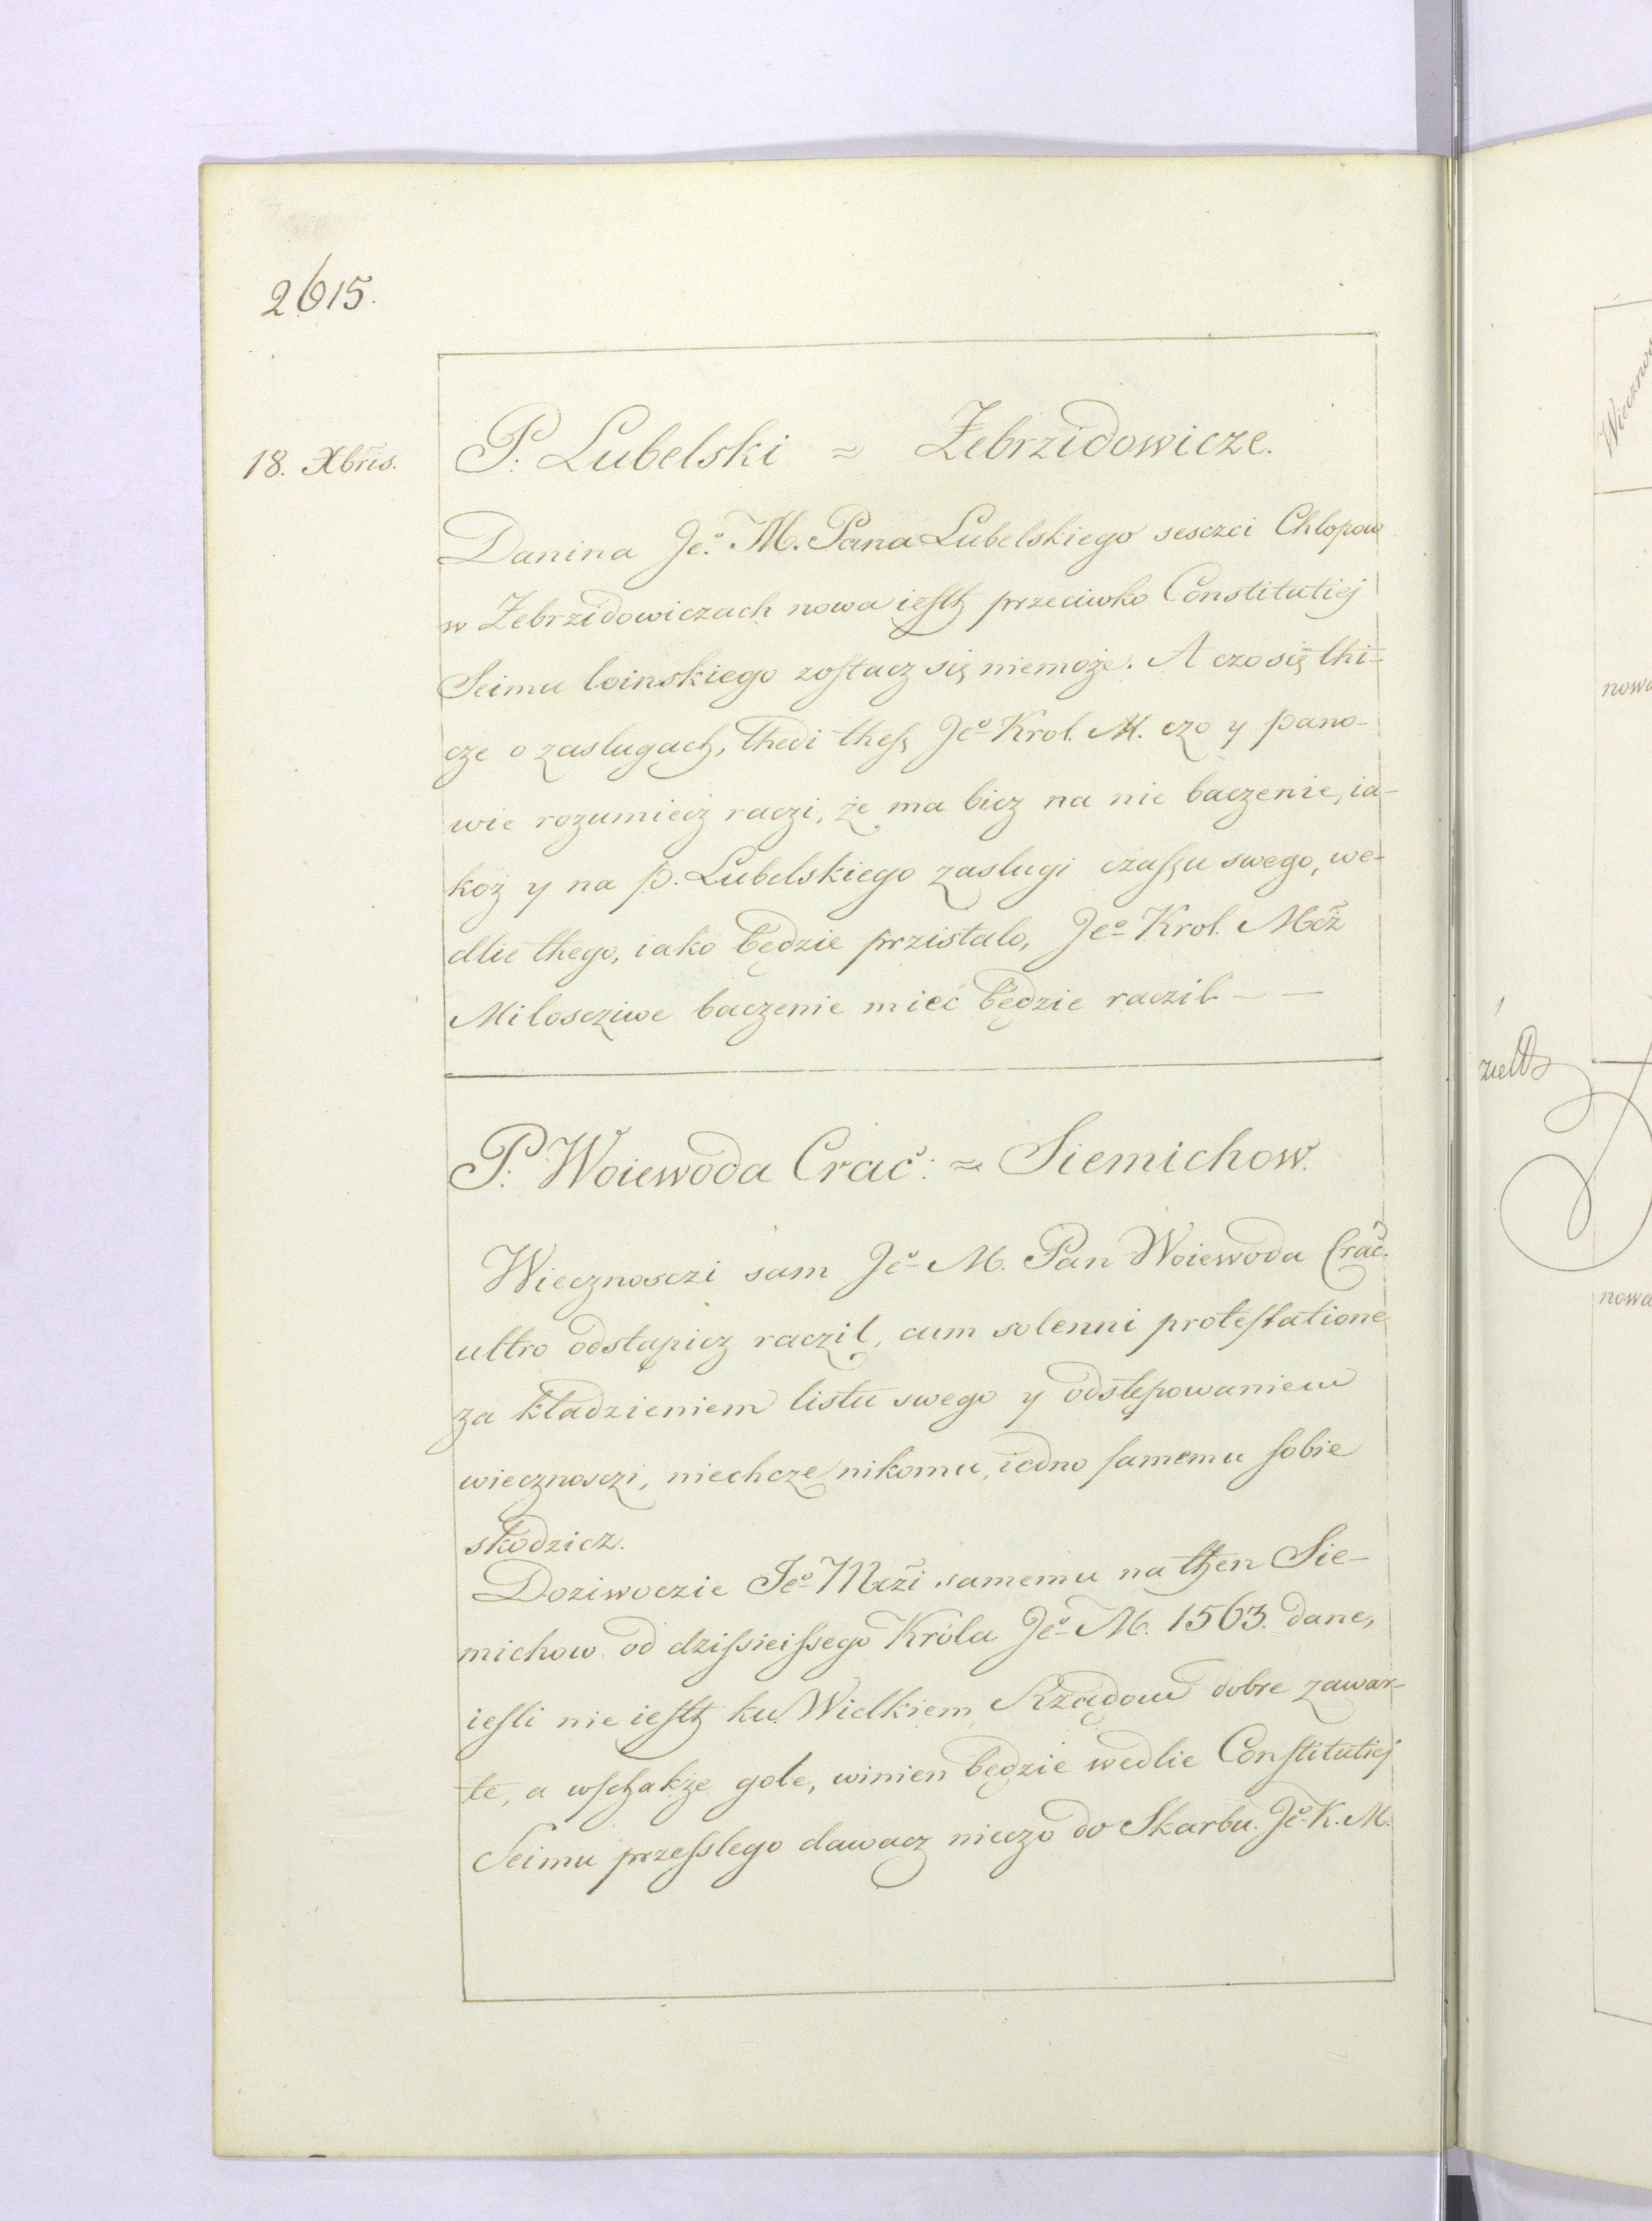 2615.
18. Xbris.
P. Lubelski = Zebrzidowicze.
Danina Jeo. M. Pana Lubelskiego sesczci Chlopow
w Zebrzidowiczach nowa iesth przeciwko Constitutiej
Seimu loinskiego zostacz się niemoże. A czo się thi-
cze o zaslugach, thedi thesz Jeo Krol. M. czo y pano-
wie rozumiecz raczi, że ma bicz na nie baczenie, ia-
koz y na p. Lubelskiego zaslugi czassu swego, we-
dlie thego, iako będzie przistalo, Jeo Krol. Mcz
Milosczive baczenie mieć będzie raczil — —
P. Woiewoda Crac: = Siemichow.
Wiecznosczi sam Jeo M. Pan Woiewoda Crac.
ultro odstąpicz raczil, cum solenni protestatione
za kładzieniem listu swego y odstępowaniem
wiecznosczi, niechcze nikomu, iedno samemu sobie
skodzicz.
Doziwoczie Jeo Mczi samemu na then Sie-
michow od dzissieissego Króla Jeo M. 1563. dane,
iesli nie iesth ku Wielkiem Rządow dobre zawar-
te, a wschakże gole, winien będzie wedlie Constitutiej
Seimu przesslego dawacz nieczo do Skarbu Jeo K. M.
nowa
zielb
nowa